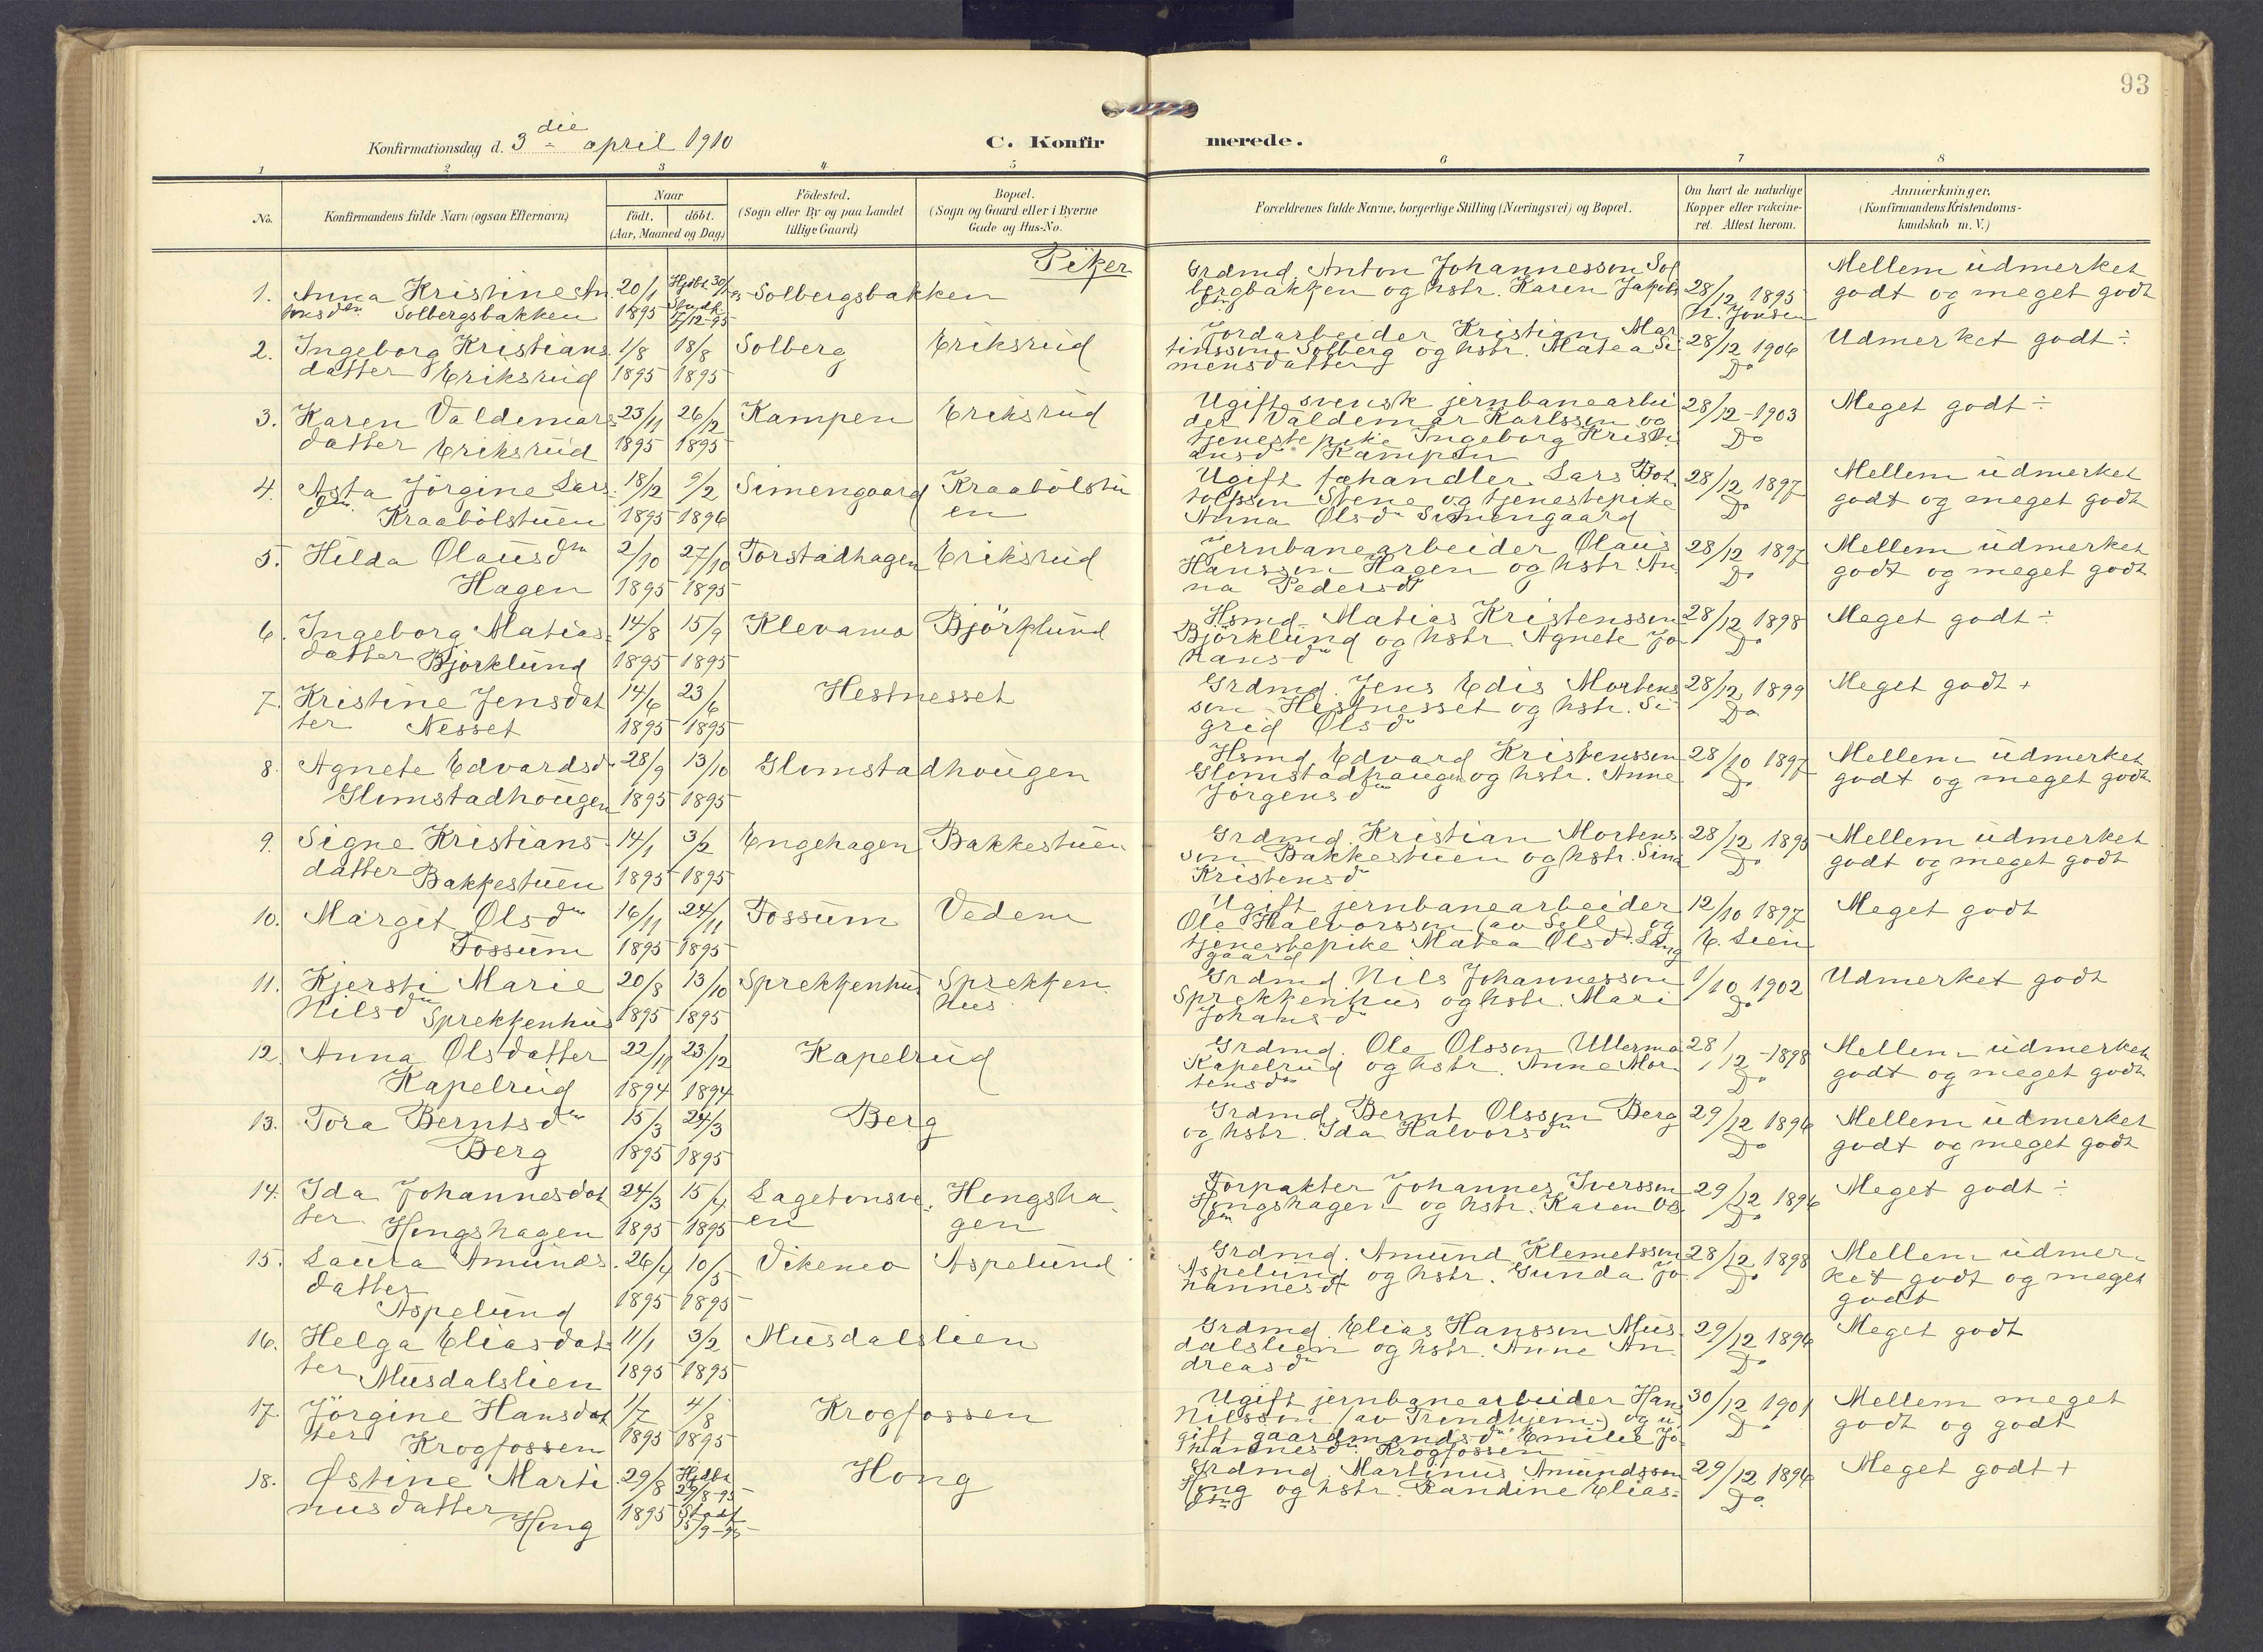 93
Konfirmationsdag d. 3die april 1910
C. Konfirmerede.
1 2 3 4 5 6 7 8
No.
Konfirmandens fulde Navn (ogsaa Efternavn)
Naar
födt. döbt.
(Aar, Maaned og Dag)
Födested.
(Sogn eller By og paa Landet
tillige Gaard)
Bopæl.
(Sogn og Gaard eller i Byerne
Gade og Hus-No.
Forældrenes fulde Navne, borgerlige Stilling (Næringsvei) og Bopæl.
Om havt de naturlige
Kopper eller vakcine-
ret. Attest herom.
Anmærkninger.
(Konfirmandens Kristendoms-
kundskab m. V.)
Piker
1. Anna Kristine An
tonsdtr Solbergsbakken
20/1 1895
Hjdbt 30/1 95
Stadf.
Solbergsbakken
Grdmd. Anton Johannesson Sol
bergbakken og hstr. Karen Jakobs
dtr
28/12 1895
H. Jonsen
Mellem udmerket
godt og meget godt
2. Ingeborg Kristians
datter Eriksrud
1/8 1895
18/8 1895
Solberg
Eriksrud
Jordarbeider Kristian Mar
tinsson Solberg og hstr. Matea Si
mensdatter
28/12 1906
Do
Udmerket godt ÷
3. Karen Valdemars
datter Eriksrud
23/11 1895
26/12 1895
Kampen
Eriksrud
Ugift svensk jernbanearbei
der Valdemar Karlsson og
tjenestepike Ingeborg Kristi
ansdtr Kampen
28/12 - 1903
Do
Meget godt ÷
4. Asta Jörgine Lars
dtr. Kraabölstuen
18/12 1895
9/2 1896
Simengaard
Kraabölstu
en
Ugift fæhandler Lars Bot
tolfson Stene og tjenestepike
Anna Olsdtr Simengaard
28/12 1897
Do
Mellem udmerket
godt og meget godt
5. Hilda Olausdtr
Hagen
2/10 1895
27/10 1895
Torstadhagen
Eriksrud
Jernbanearbeider Olaus
Hansson Hagen og hstr An
na Pedersdtr
28/12 1897
Do
Mellem udmerket
godt og meget godt
6. Ingeborg Matias
datter Björklund
14/8 1895
15/9 1895
Klevamo
Björklund
Hsmd. Matias Kristensson
Björklund og hstr. Agnete Jo
hansdtr
28/12 1898
Do
Meget godt ÷
7. Kristine Jensdat
ter Nesset
14/6 1895
23/6 1895
Hestnesset
Grdmd. Jens Edis Mortens
son Hestnesset og hstr. Si
grid Olsdtr
28/12 1899
Do
Meget godt +
8. Agnete Edvardsdtr
Glomstadhougen
28/9 1895
13/10 1895
Glomstadhougen
Hsmd. Edvard Kristensson
Glomstadhaugen og hstr. Anne
Jörgensdtr
28/10 1897
Do
Mellem udmerket
godt og meget godt
9. Signe Kristians-
datter Bakkestuen
14/1 1895
3/2 1895
Engehagen
Bakkestuen
Grdmd Kristian Mortens
son Bakkestuen og hstr. Sina
Kristensdtr
28/12 1895
Do
Mellem udmerket
godt og meget godt
10. Margit Olsdtr
Fossum
16/11 1895
24/11 1895
Fossum
Vedem
Ugift jernbanearbeider
Ole Halvorsson (av Sell.) og
tjenestepike Matea Olsdtr. Lang
gaard
12/10 1897
E. Lien
Meget godt
11. Kjersti Marie
Nilsdtr Sprekkenhus
20/8 1895
13/10 1895
Sprekkenhus
Sprekken
hus
Grdmd. Nils Johannesson
Sprekkenhus og hstr. Mari
Johansdtr
1/10 1902
Do
Udmerket godt
12. Anna Olsdatter
Kapelrud
22/11 1894
23/12 1894
Kapelrud
Grdmd. Ole Olsson Ullermo
Kapelrud og hstr. Anne Mor
tensdtr
28/12 - 1898
Do
Mellem udmerket
godt og meget godt
13. Tora Berntsdtr
Berg
15/3 1895
24/3 1895
Berg
Grdmd. Bernt Olsson Berg
og hstr. Ida Halvorsdtr
29/12 1896
Do
Mellem udmerket
godt og meget godt
14. Ida Johannesdat
ter Hongshagen
24/3 1895
15/4 1895
Lagetonsve
en
Hongsha
gen
Forpakter Johannes Iversson
Hongshagen og hstr. Karen Ols
dtr
29/12 1896
Do
Meget godt ÷
15. Laura Amunds
datter
Aspelund
26/4 1895
10/5 1895
Vikemo
Aspelund
Grdmd. Amund Klemetsson
Aspelund og hstr. Gunda Jo
hannesdtr
28/12 1898
Do
Mellem udmer
ket godt og meget
godt
16. Helga Eliasdat
ter Musdalslien
11/1 1895
3/2 1895
Musdalslien
Grdmd. Elias Hansson Mus
dalslien og hstr. Anne An
dreasdtr
29/12 1896
Do
Meget godt
17. Jörgine Hansdat
ter Krogfossen
1/7 1895
4/8 1895
Krogfossen
Ugift jernbanearbeider Hans
Nilsson (av Trondhjem) og u
gift gaardmandsdtr Emilie Jo
hannesdtr Krogfossen
30/12 1901
Do
Mellem meget
godt og godt
18. Østine Marti
nusdatter Hong
29/8 1895
Hjdbt
29/8-95
Stadf
15/9-95
Hong
Grdmd. Martinus Amundsson
Hong og hstr. Randine Elias-
dtr
29/12 1896
Do
Meget godt +